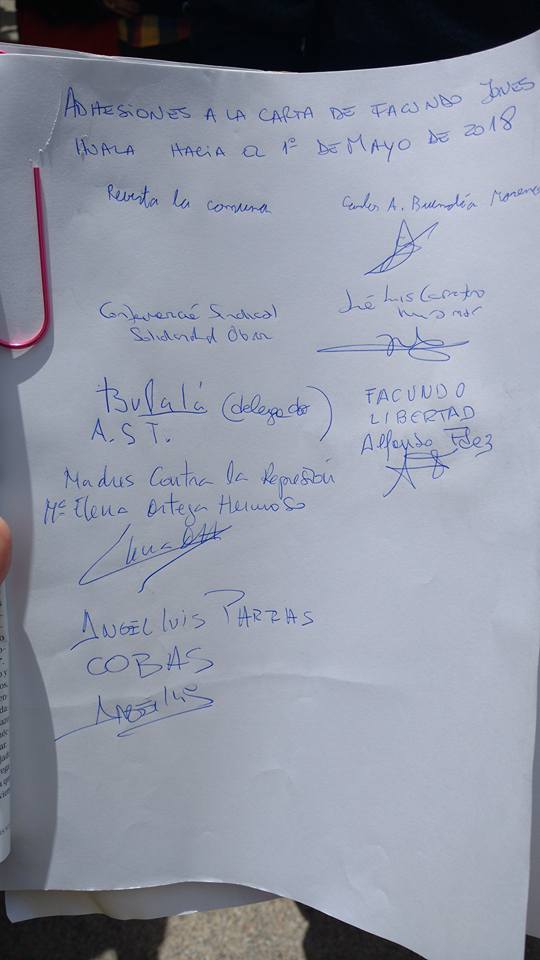 ADHESIONES A LA CARTA DE FACUNDO JONES
HUALA HACIA el 1º DE MAYO DE 2018
Revista la comuna
Carlos A. Buendía Moreno
José Luis Carretero
Solidaridad Obrera
BuPalá (delegado)
A.S.T.
FACUNDO
LIBERTAD
Alfonso Fdez
Madres Contra la Represión
Mª Elena Ortega Hermoso
ANGEL LUIS PARRAS
COBAS